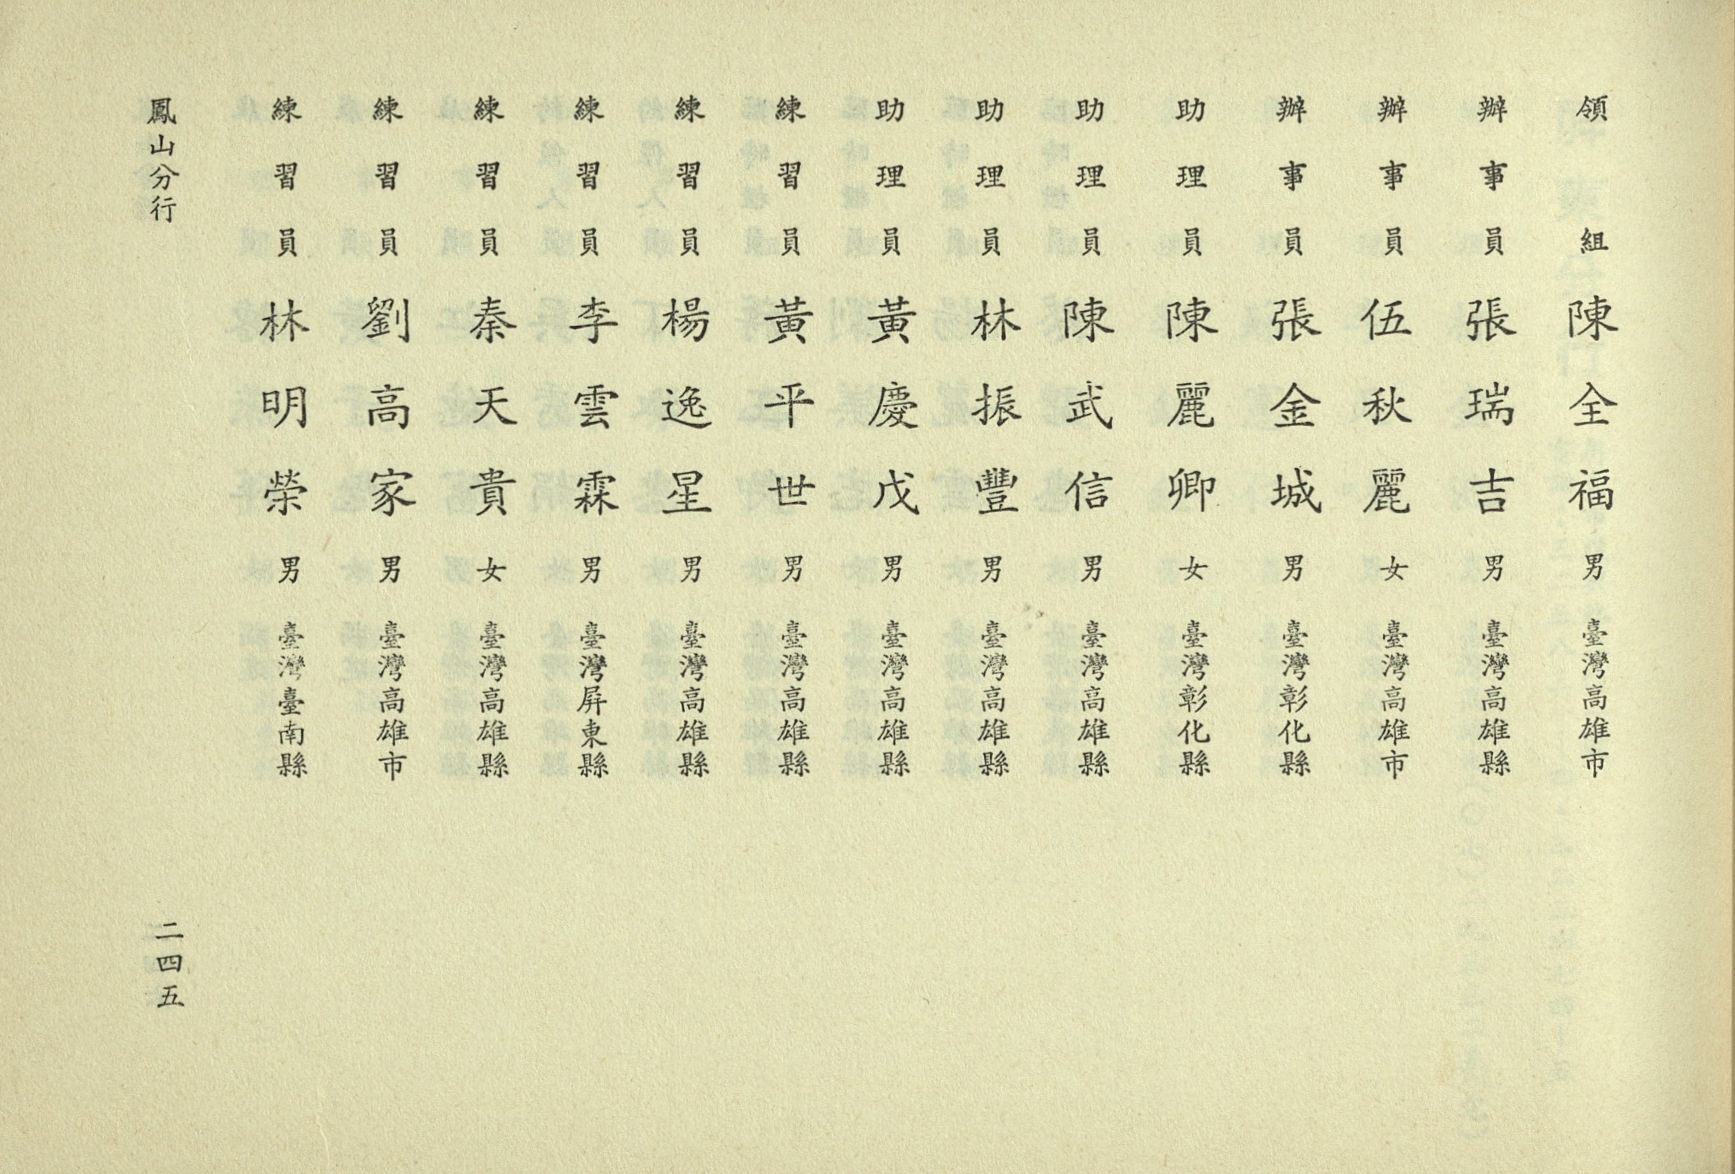 領組 陳全福 男 臺灣高雄市
辦事員 張瑞吉 男 臺灣高雄縣
辦事員 伍秋麗 女 臺灣高雄市
辦事員 張金城 男 臺灣彰化縣
助理員 陳麗卿 女 臺灣彰化縣
助理員 陳武信 男 臺灣高雄縣
助理員 林振豐 男 臺灣高雄縣
助理員 黃慶戊 男 臺灣高雄縣
練習員 黃平世 男 臺灣高雄縣
練習員 楊逸星 男 臺灣高雄縣
練習員 李雲霖 男 臺灣屏東縣
練習員 秦天貴 女 臺灣高雄縣
練習員 劉高家 男 臺灣高雄市
練習員 林明榮 男 臺灣臺南縣
鳳山分行
二四五